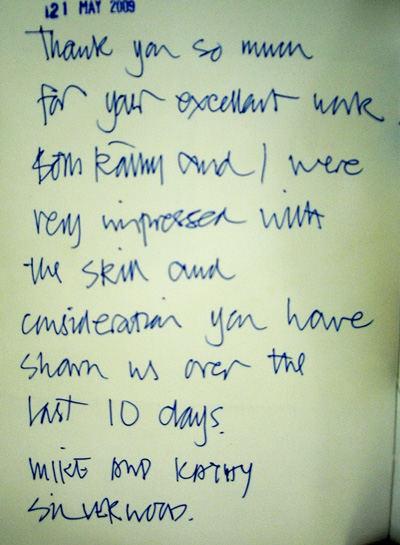 21 MAY 2009
Thank you so much
for your excellant work
Both Kathy and I were
very impressed with
the skill and
consideration you have
shown us over the
last 10 days.
MIKE AND KATHY
SILVERWOOD.